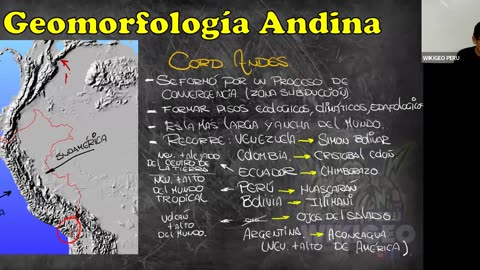 Geomorfología Andina
WIKIGEO PERU
CORD ANDES
- SE FORMÓ POR UN PROCESO DE
CONVERGENCIA (ZONA SUBDUCCIÓN)
- FORMAR PISOS ECOLÓGICOS, CLIMÁTICOS, EDAFOLÓGICO
- ES LA MÁS LARGA Y ANCHA DEL MUNDO.
- RECORRE: VENEZUELA → SIMON BOLIVAR
COLOMBIA → CRISTOBAL COLÓN
ECUADOR → CHIMBORAZO
PERÚ → HUASCARAN
BOLIVIA → ILLIMANI
→ OJOS DEL SALADO
ARGENTINA → ACONCAGUA
(NEV. + ALTO DE AMERICA)
NEV. + ALEJADO
DEL CENTRO DE
LA TIERRA
NEV. + ALTO
DEL MUNDO
TROPICAL
VOLCÁN
+ ALTO
DEL MUNDO.
SUDAMERICA